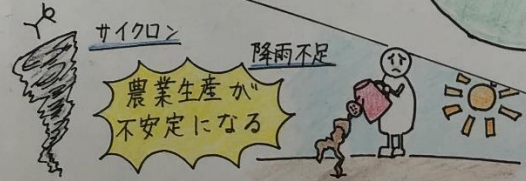 サイクロン
降雨不足
農業生産が
不安定になる